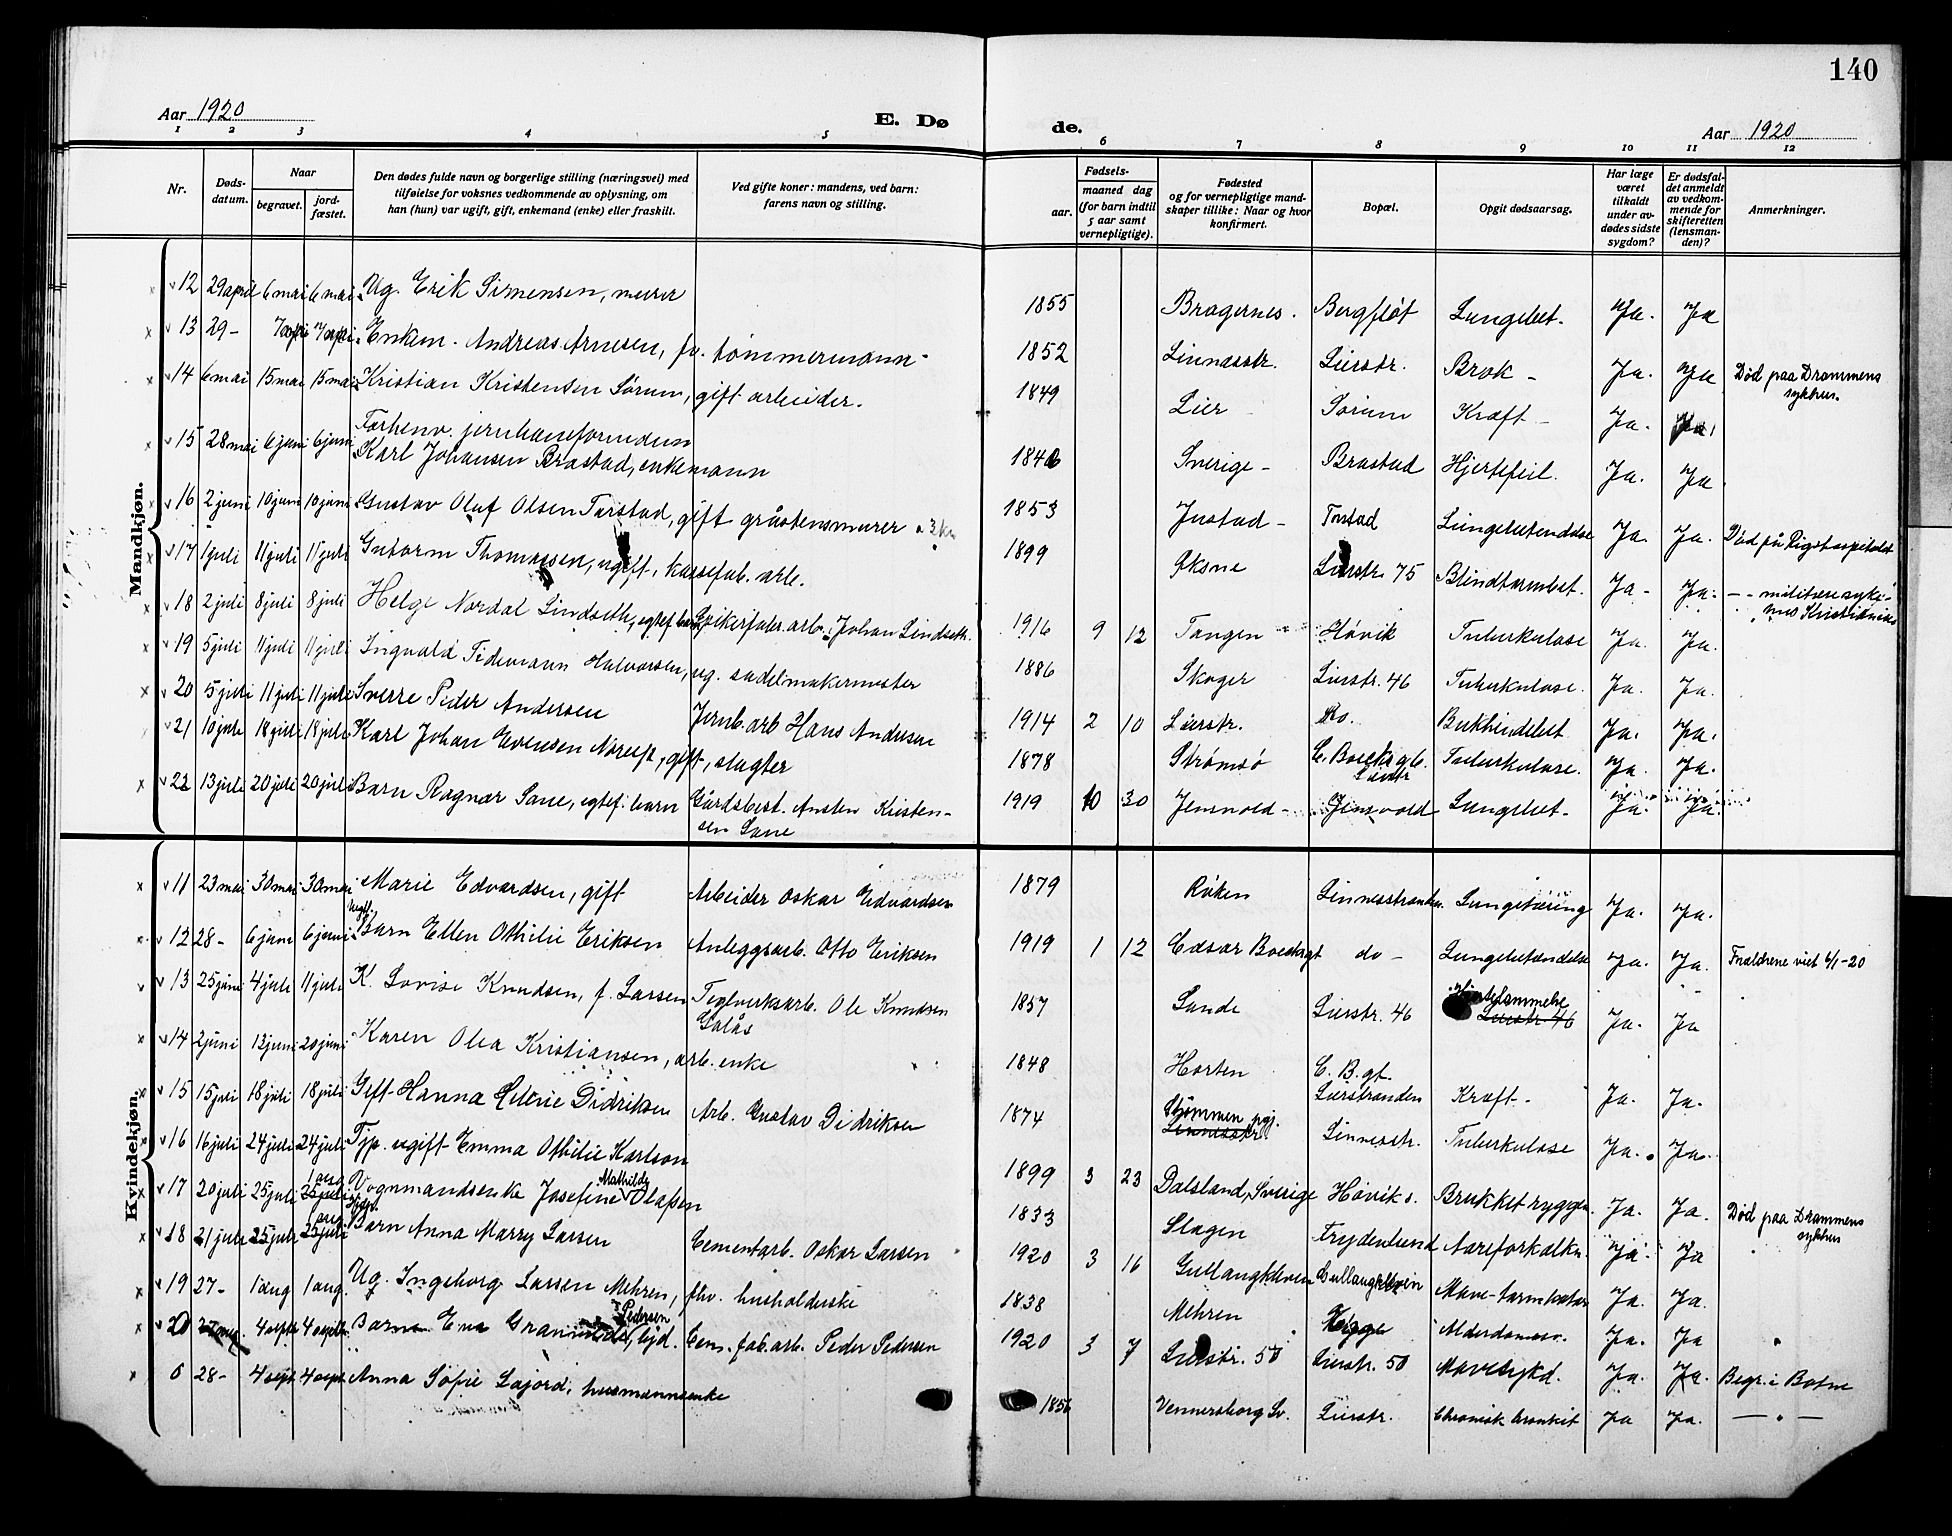 140
Aar 1920
E. Dø
de.
Aar 1920
1 2 3 4 5 6 7 8 9 10 11 12
Nr.
Døds-
datum.
Naar
begravet.
jord-
fæstet.
Den dødes fulde navn og borgerlige stilling (næringsvei) med
tilføielse for voksnes vedkommende av oplysning, om
han (hun) var ugift, gift, enkemand (enke) eller fraskilt.
Ved gifte koner: mandens, ved barn:
farens navn og stilling.
Fødsels-
aar.
maaned dag
(for barn indtil
5 aar samt
vernepligtige).
Fødested
og for vernepligtige mand-
skaper tillike: Naar og hvor
konfirmert.
Bopæl.
Opgit dødsaarsag.
Har læge
været
tilkaldt
under av-
dødes sidste
sygdom?
Er dødsfal-
det anmeldt
av vedkom-
mende for
skifteretten
(lensman-
den)?
Anmerkninger.
Mandkjøn.
12 29 april 6 mai 6 mai Ug. Erik Simensen, murer 1855 Bragernes. Bergfløt Lungebet. Ja. Ja
13 29- Enkem. Andreas Arnesen, fv. tømmermann 1852 Linnesstr. Lierstr. Brok - Ja. Ja Død paa Drammens
sykhus.
14 6 mai 15 mai 15 mai Kristian Kristensen Sørum, gift arbeider. 1849 Lier Sørum Kræft - Ja. Ja.
Forhenv. jernbaneformdmn
15 28 mai 6 juni 6 juni Karl Johansen Brastad, enkemann Sverige - Brastad Hjertefeil. Ja. Ja
16 2 juni 10 juni 10 juni Gustav Oluf Olsen Tarstad, gift gråstensmurer 1853 Justad - Lungebetendelse Ja. Ja. Død på Rigshospitalet
17 1 juli 11 juli 11 juli Gutorm Thomassen, ugift, kassefab. arb. 1899 Øksne Lierstr. 75 Blindtarmbet. Ja - Ja. - militære syke-
hus Kristiania
18 2 juli 8 juli 8 juli Helge Nordal Lindseth, egtef. barn Spikerfabr. arb. Johan Lindseth. 1916 9 12 Tangen Høvik Tuberkulose Ja. Ja.
19 5 juli 11 juli 11 juli Ingvald Tidemann Halvorsen, ug. sadelmakermester 1886 Skoger Lierstr. 46 Tuberkulose. Ja. Ja.
20 5 juli 11 juli 11 juli Sverre Peder Andersen Jernb. arb Hans Andersen 1914 2 10 Lierstr. Do. Bukhindebet Ja. Ja.
21 10 juli 18 juli 18 juli Karl Johan Evensen, gift, slagter 1878 Strømsø C. Boecks gt.
Lierstr Tuberkulose. Ja. Ja.
22 13 juli 20 juli 20 juli Barn Ragnar Sane, egtef. barn Gårdsbest. Ansten Kristen-
sen Sane 1919 10 30 Jensvold - Jensvold Lungebet. Ja. Ja.
Kvindekjøn.
11 23 mai 30 mai 30 mai Marie Edvardsen, gift Arbeider Oskar Edvardsen 1879 Røken Linnesstranden. Lungetæring Ja. Ja.
Uegt.
12 28- 6 juni 6 juni Barn Ellen Othilie Eriksen Anleggsarb. Otto Eriksen 1919 1 12 Cæsar Boecksgt do - Lungebetændelse Ja. Ja. Forældrene viet 4/1-20
13 25 juni 4 juli 11 juli K. Lovise Knudsen, f. Larsen Teglverksarb. Ole Knudsen
Galås 1857 Sande Lierstr. 46 Hjertelammelse
Lierstr 46 Ja. Ja
14 2 juni 13 juni 20 juni Karen Olea Kristiansen, arb. enke 1848 Horten C. B. gt.
Lierstranden Kræft - Ja. Ja.
15 15 juli 18 juli 18 juli Gift Hanna Helene Didriksen Arb. Gustav Didriksen 1874 Strømmen pgj.
Linnesstr. Linnesstr. Tuberkulose Ja. Ja.
16 16 juli 24 juli 24 juli Tjp. ugift Emma Othilie Karlson 1899 3 23 Dalsland, Sverige Høvik s. Brukket ryggen. Ja. Ja. Død paa Drammens
sykhus
17 20 juli 25 juli 25 juli Vognmandsenke Josefine Mathilde Olafsen 1833 Slagen Frydenlund Aareforkalkn. Ja. Ja
1 aug.
18 21 juli 25 juli 25 juli Barn Anna Marry Larsen Cementarb. Oskar Larsen 1920 3 16 Gullaugkleven Gullaugkleven Mave-tarmkatar Ja. Ja.
19 27- 1 aug 1 aug. Ug. Ingeborg Larsen Mehren, fhv. husholderske 1838 Mehren Alderdomssv. Ja. Ja
20 4 sept. 4 sept. Barn Ena Pedersen, Cem. fab. arb. Peder Pedersen 1920 3 7 Lierstr. 50 Lierstr. 50 Mavesykd. Ja. Ja Begr. i Botne
0 28- 4 sept. 4 sept. Anna Sofie Lajord, husmannsenke 1856 Vennersborg Sv. Lierstr. Chronisk bronkit Ja Ja. — " —